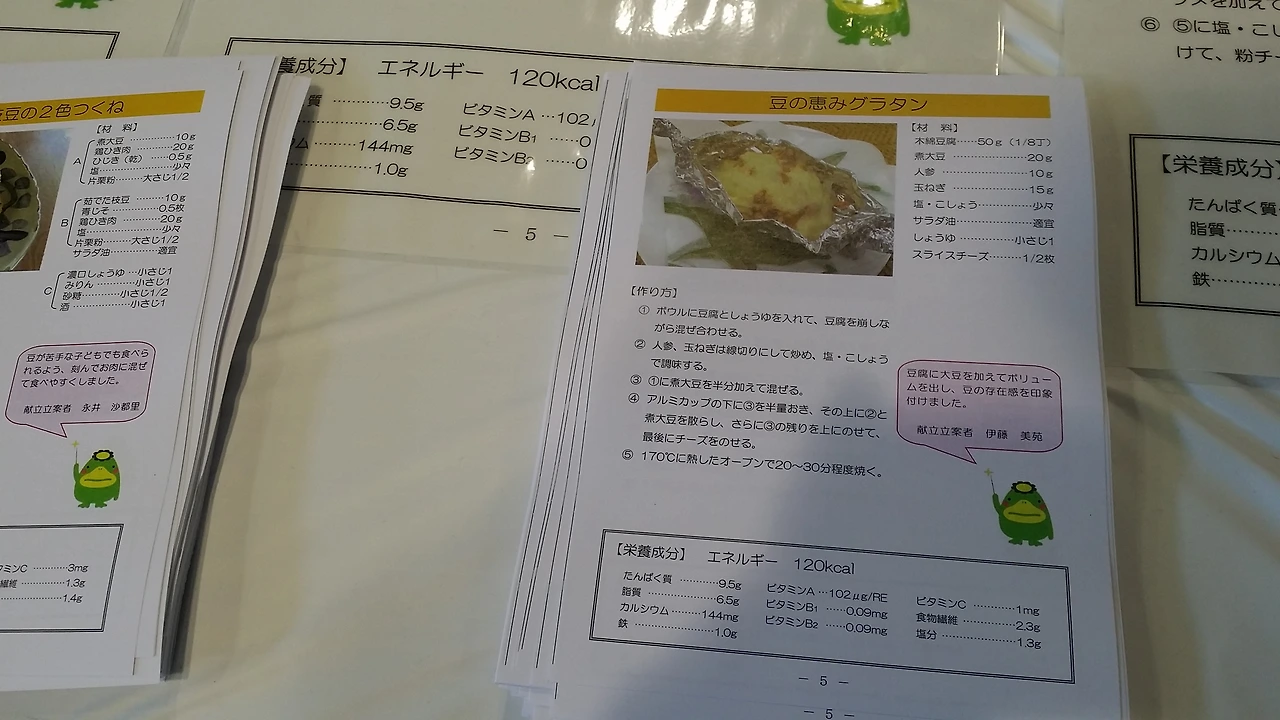 豆の2色つくね
【材　料】
A
煮大豆……………10g
鶏ひき肉…………20g
ひじき（乾）……0.5g
塩…………………少々
片栗粉………大さじ1/2
B
茹でた枝豆………10g
青じそ……………0.5枚
鶏ひき肉…………20g
塩…………………少々
片栗粉………大さじ1/2
サラダ油…………適宜
C
濃口しょうゆ…小さじ1
みりん…………小さじ1
砂糖…………小さじ1/2
酒………………小さじ1
豆が苦手な子どもでも食べら
れるよう、刻んでお肉に混ぜ
て食べやすくしました。
献立立案者　永井　沙都里
ミンC…………3mg
繊維…………1.3g
…………1.4g
養成分】　エネルギー　120kcal
質…………9.5g　ビタミンA…102
…………6.5g　ビタミンB1……0
ム…………144mg　ビタミンB2……0
…………1.0g
－ 5 －
豆の恵みグラタン
【材　料】
木綿豆腐……50g（1/8丁）
煮大豆……………20g
人参………………10g
玉ねぎ……………15g
塩・こしょう……少々
サラダ油…………適宜
しょうゆ………小さじ1
スライスチーズ……1/2枚
【作り方】
① ボウルに豆腐としょうゆを入れて、豆腐を崩しな
がら混ぜ合わせる。
② 人参、玉ねぎは線切りにして炒め、塩・こしょう
で調味する。
③ ①に煮大豆を半分加えて混ぜる。
④ アルミカップの下に③を半量おき、その上に②と
煮大豆を散らし、さらに③の残りを上にのせて、
最後にチーズをのせる。
⑤ 170℃に熱したオーブンで20～30分程度焼く。
豆腐に大豆を加えてボリュー
ムを出し、豆の存在感を印象
付けました。
献立立案者　伊藤　美苑
【栄養成分】　エネルギー　120kcal
たんぱく質…………9.5g　ビタミンA…102μg/RE　ビタミンC…………1mg
脂質…………6.5g　ビタミンB1……0.09mg　食物繊維…………2.3g
カルシウム………144mg　ビタミンB2……0.09mg　塩分…………1.3g
鉄…………1.0g
－ 5 －
－ 5 －
⑥ ⑤に塩・こし
けて、粉チー
【栄養成分】
たんぱく質
脂質………
カルシウム
鉄…………